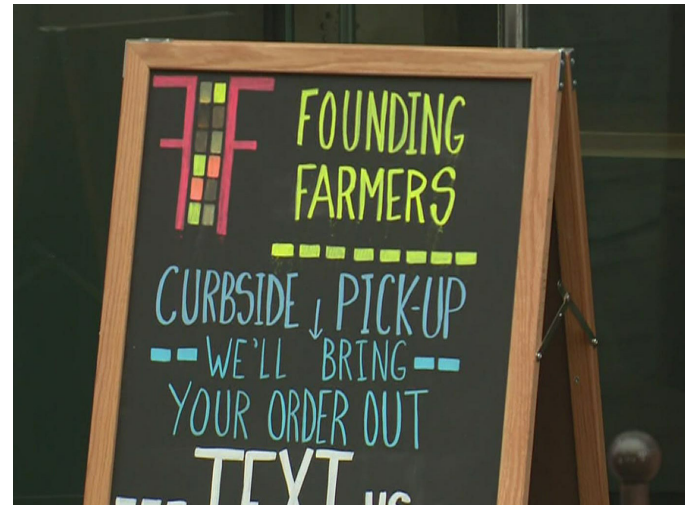 FOUNDING
FARMERS
CURBSIDE ↓ PICK-UP
WE'LL BRING
YOUR ORDER OUT
TEXT US